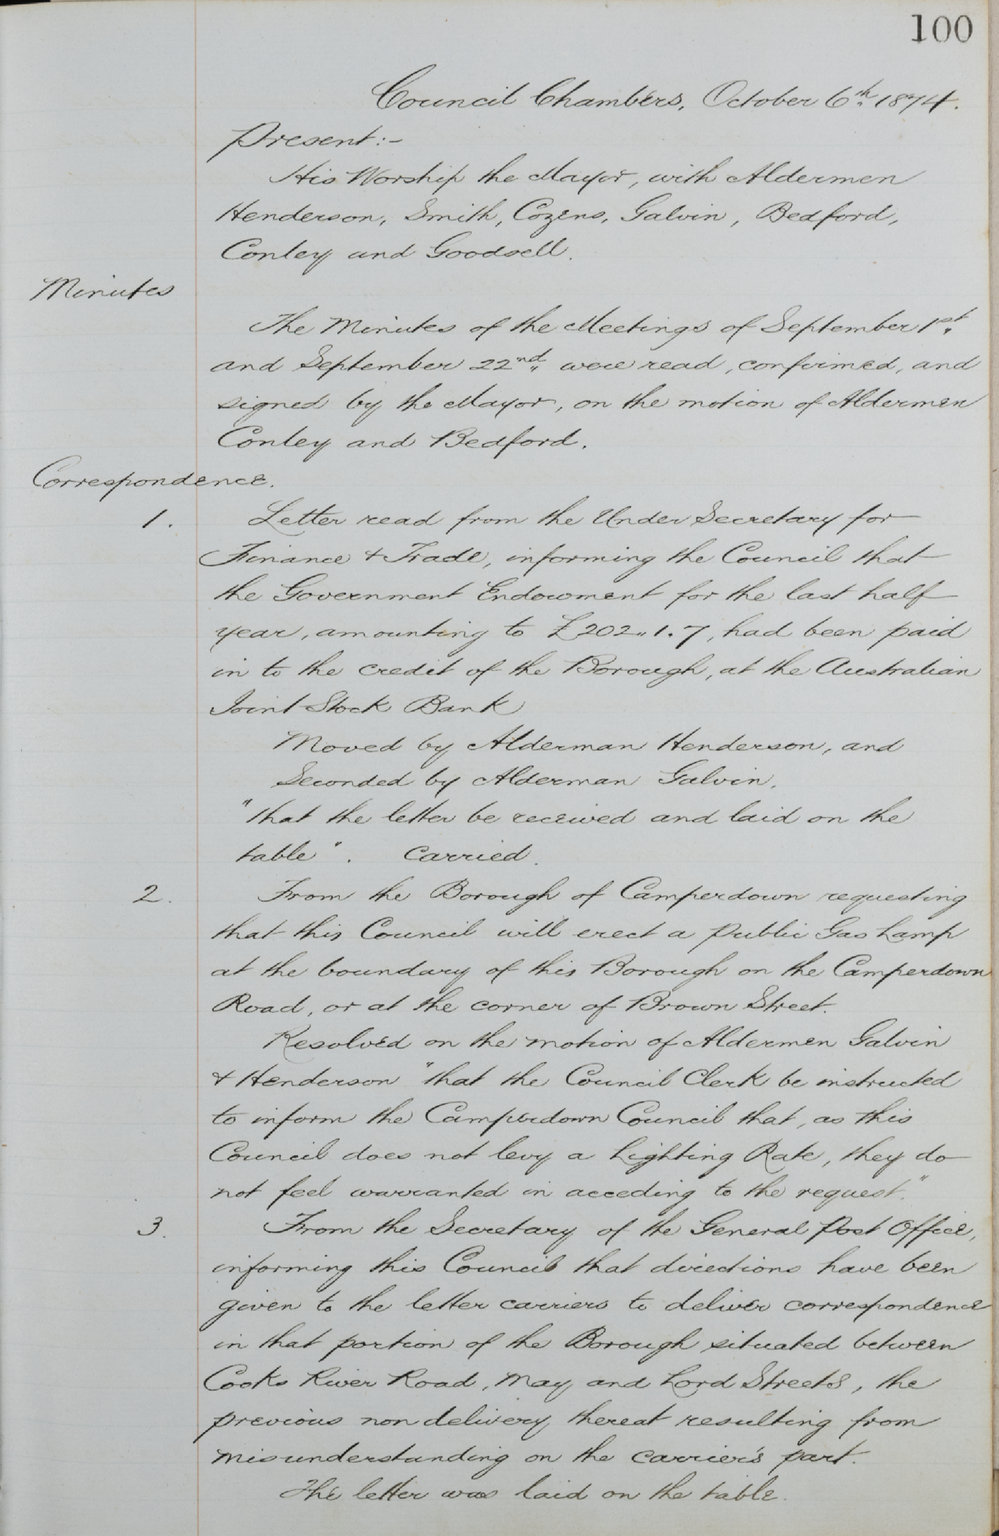 100
Council Chambers, October 6th 1874.
Present:-
His Worship the Mayor, with Aldermen
Henderson, Smith, Cozens, Galvin, Bedford,
Conley and Goodsell.
Minutes
The Minutes of the Meetings of September 1st
and September 22nd were read, confirmed, and
signed by the Mayor, on the motion of Aldermen
Conley and Bedford.
Correspondence.
1. Letter read from the Under Secretary for
Finance & Trade, informing the Council that
the Government Endowment for the last half
year, amounting to £202.,1.7, had been paid
in to the credit of the Borough, at the Australian
Joint Stock Bank
Moved by Alderman Henderson, and
Seconded by Alderman Galvin.
"that the letter be received and laid on the
table". Carried.
2. From the Borough of Camperdown requesting
that this Council will erect a Public Gas Lamp
at the boundary of this Borough on the Camperdown
Road, or at the corner of Brown Street.
Resolved on the motion of Aldermen Galvin
& Henderson "that the Council Clerk be instructed
to inform the Camperdown Council that, as this
Council does not levy a Lighting Rate, they do
not feel warranted in acceding to the request."
3. From the Secretary of the General Post Office,
informing this Council that directions have been
given to the letter carriers to deliver correspondence
in that portion of the Borough situated between
Cooks River Road, May and Lord Streets, the
previous non delivery thereat resulting from
misunderstanding on the carrier's part.
The letter was laid on the table.